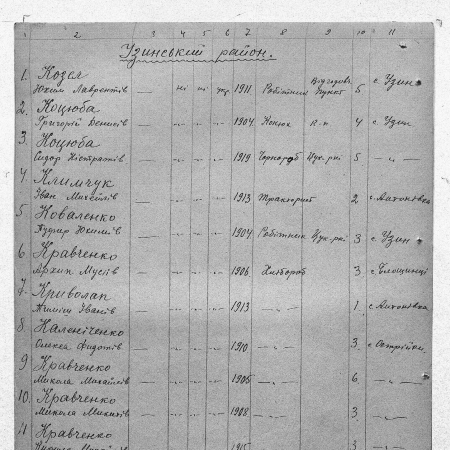 1 2 3 4 5 6 7 8 9 10 11
Узинський район.
1. Козел
Юхим Лаврентів — ні ні 1911 Робітник пункт 5 с. Узин
2. Коцюба
Григорій Денисів — -„- -„- -„- 1904 Конюх 4 с. Узин
3. Коцюба
Сидор — -„- -„- -„- 1919 Чорнороб Цук-рні 5 -„-
4. Климчук
Іван Михайлів — -„- -„- -„- 1913 Тракторист 2 с. Антонівка
5. Коваленко
Юхимів — -„- -„- -„- 1904 Робітник Цук-рні 3 с. Узин
6. Кравченко
Архип Мусіів — -„- -„- -„- 1906 Хлібороб 3 с. Блощинці
7. Криволап
Іванів — -„- -„- -„- 1913 -„- 1 с. Антонівка
8.
Олекса Федотів — -„- -„- -„- 1910 -„- 3 с. Острійки
9 Кравченко
Микола Михайлів — -„- -„- -„- 1905 -„- 6 -„-
10. Кравченко
Микола Микитів — -„- -„- -„- 1908 -„- 3 -„-
11 Кравченко
1915 3